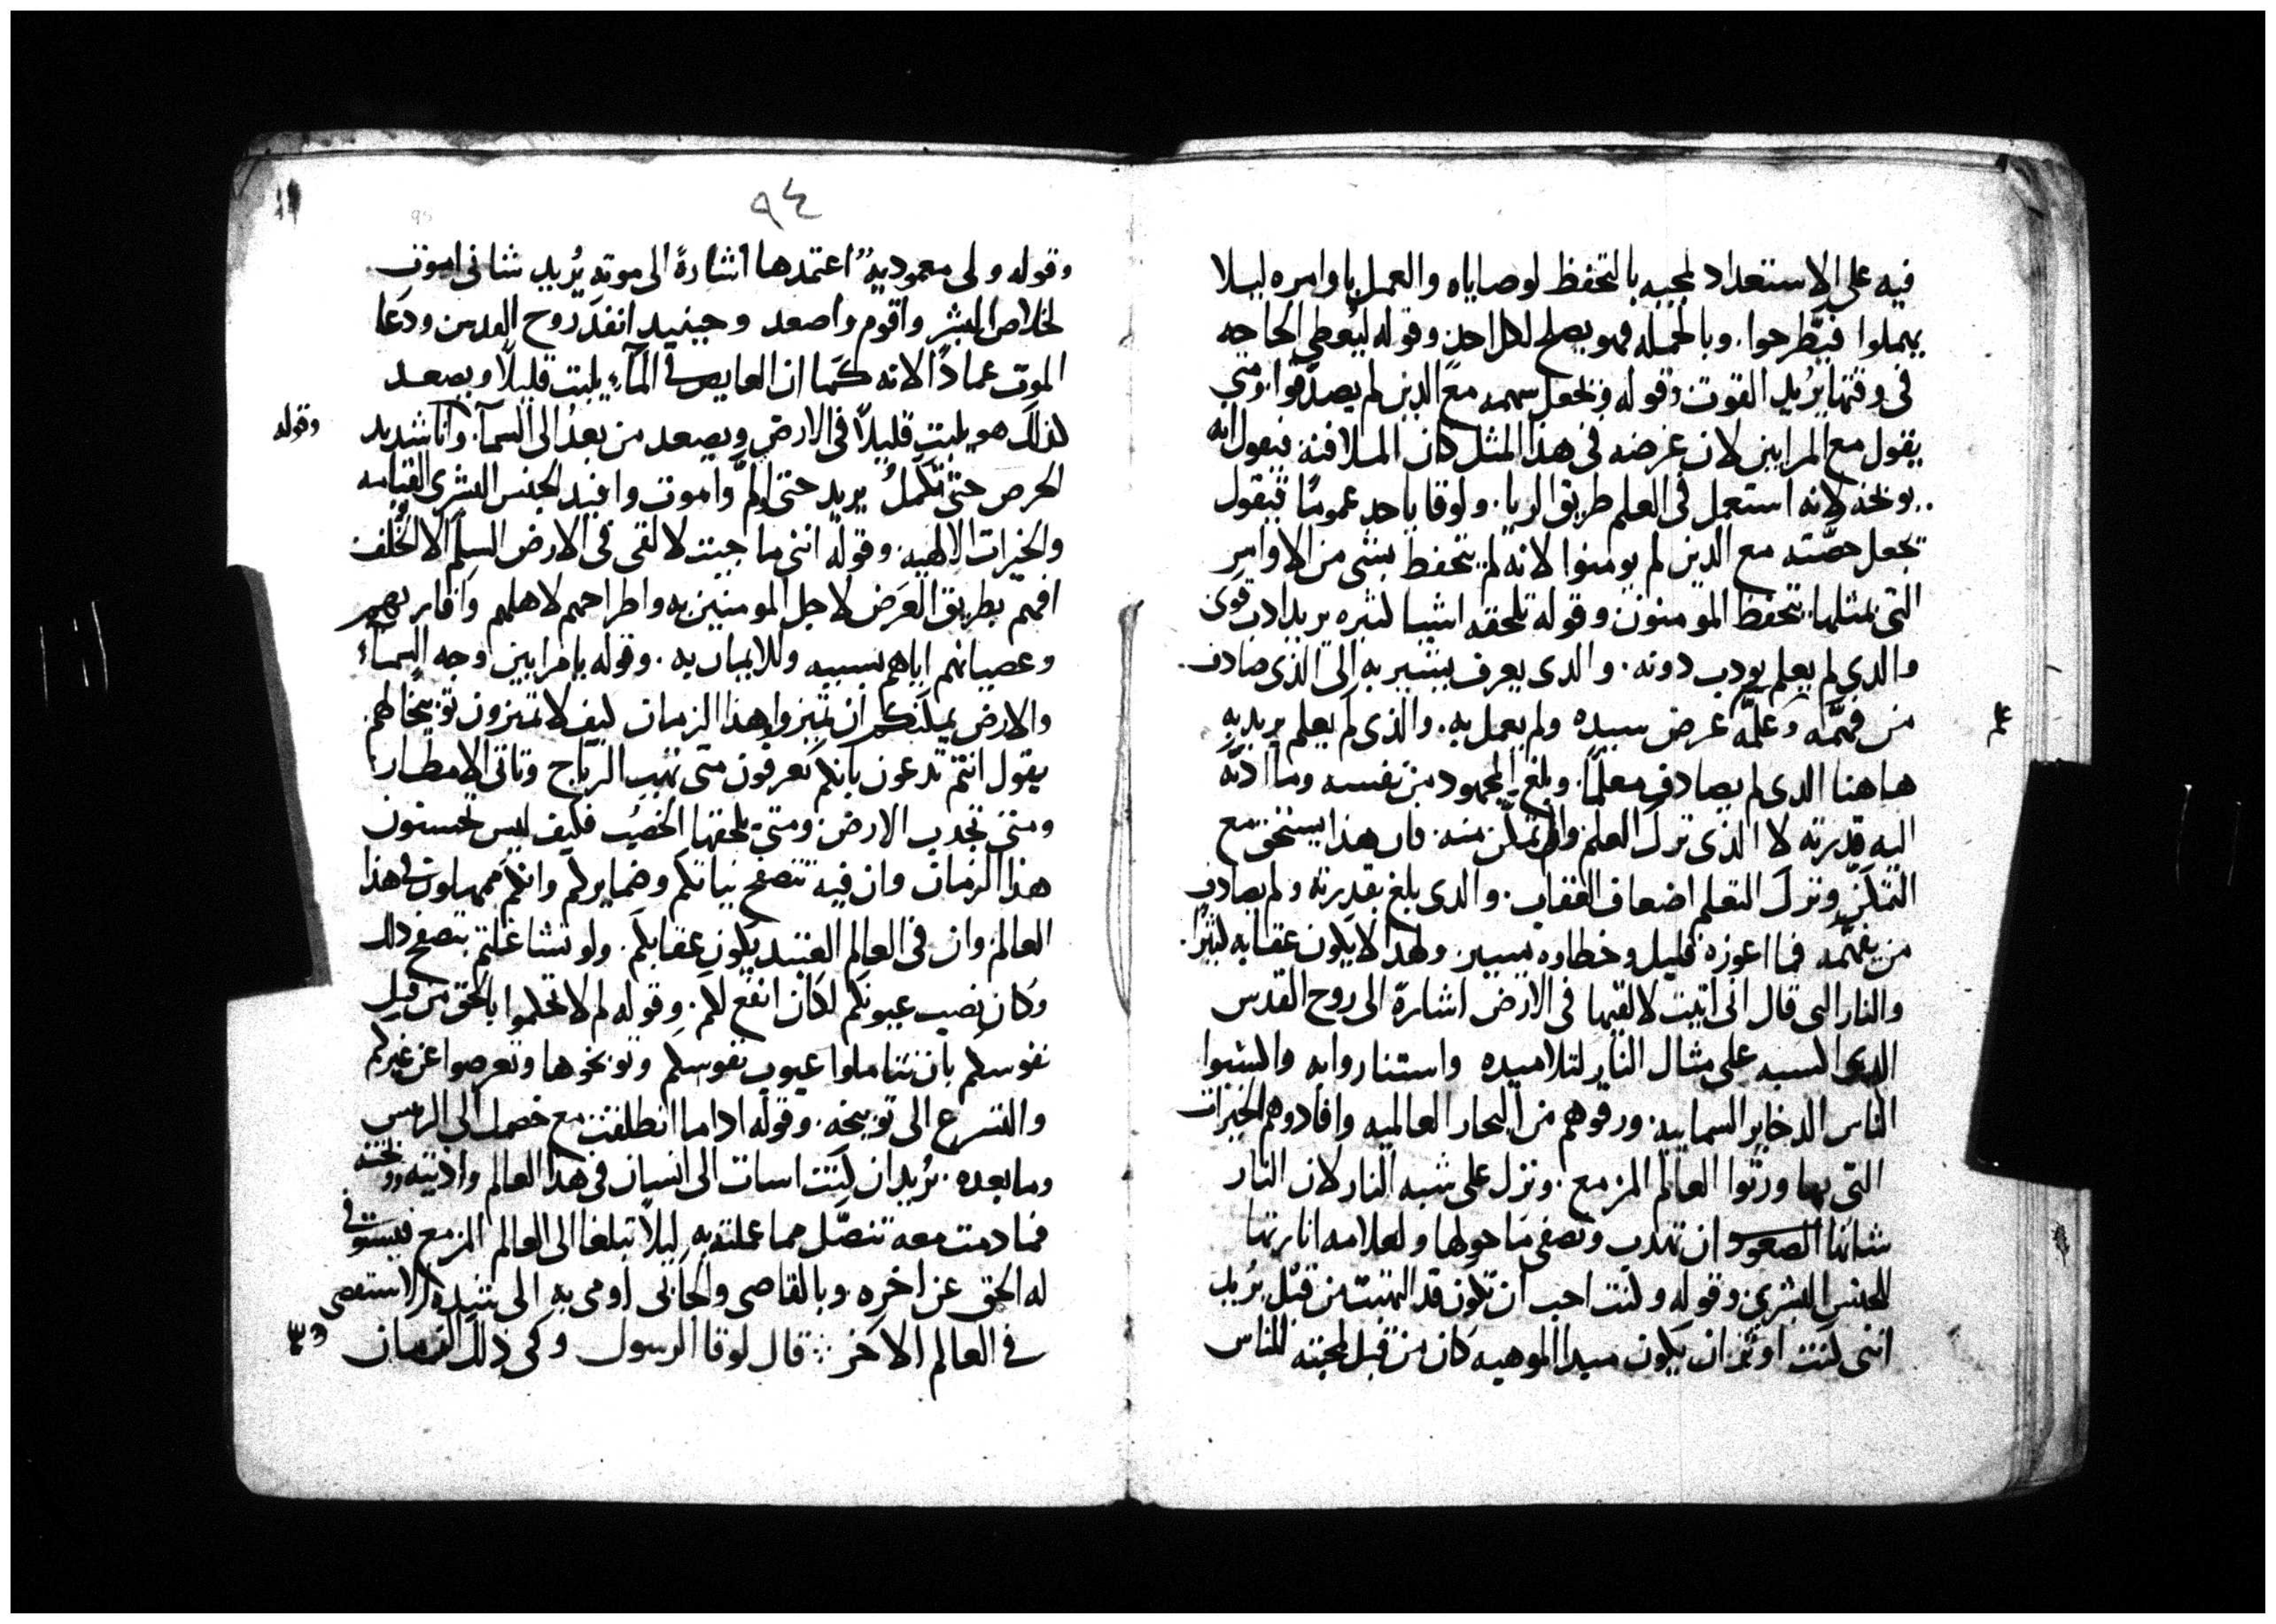 فيه على الاستعداد لمجيه بالتحفظ لوصاياه والعمل باوامره ليلا
يهملوا فيطرحوا. وبالجمله فهو يصلح لكل احد وقوله ليعطي الحاجه
في وقتها يريد القوت وقوله ونجعل سهمه مع الذين لم يصدقوا. ومتي
يقول مع المرايين لان غرضه في هذا المثل كان الملافنه فيقول انه
يوبخه لانه استعمل في العلم طريق الريا. ولوقا ياخد عموما فيقول
نجعل حصّته مع الذين لم يومنوا لانه لم يتحفظ بشي من الاوامر
التي بمثلها يتحفظ المومنون وقوله تلحقه اشيا كثيره يريد ادب قوي
والدي لم يعلم يودب دونه. والدى يعرف يشير به الى الذى صادف
من فهمّه وعلمّه غرض سيده ولم يعمل به. والذى لم يعلم يريد به
علم
هاهنا الدى لم يصادف معلما. وبلغ المجهود من نفسه وما ادته
اليه قدرته لا الذى ترك العلم والتمكن منه فان هذا يستحق مع
التمكن وترك التعلم اضعاف العقاب. والدى بلغ بقدرته ولم يصادف
من يفهّمه فما اعوزه قليل وخطاره يسير ولهدا لا يكون عقابه كثيرًا.
والنار التى قال انى اتيت لالقيها فى الارض اشارة الى روح القدس
الدى على مثال النار لتلاميده واستناروا به واكسبوا
الناس الدخاير السماييه. ورقوهم من البحار العالميه وافادوهم الخيرات
التى بها ورثوا العالم المزمع. ونزل على شبه النار لان النار
شانها الصعود ان تهدب وتصفى ما حولها ولعلامه انارتها
للجنس البشري وقوله وكنت احب ان تكون قد التهبت من قبل يريد
اننى كنت اوثر ان يكون الموهبه كان من قبل لمحبته للناس
٩٤
95
وقوله ولى معموديه اعتمدها اشارة الى موته يُريد شانى اموت
لخلاص البشر واقوم واصعد وحينيد انفد روح القدس ودعا
الموت عمادًا لانه كما ان الغايص فى المآء يلبت قليلًا ويصعد
كذلك هو يلبت قليلًا فى الارض ويصعد من بعد الى السمآ. وانا شديد
وقوله
الحرص حتى تكمل يريد حتى اولم واموت وافيد الجنس البشرى القيامه
والخيرات الالهيه. وقوله اننى ما جيت لالقى فى الارض السلم الا الخُلف
افهم بطريق العَرض لاجل المومنين به واطراحهم لاهلهم واقاربهم
وعصيانهم اياهم بسببه وللايمان به. وقوله يا مرايين اوجه السمآء
والارض يمكنكم ان تميزوا وهذا الزمان كيف لا تميزون توبيخا لهم
يقول انتم تدعون بانكم تعرفون متى تهب الرياح وتاتى الامطار
ومتى تجدب الارض ومتى يلحقها الخصب فكيف ليس تحسنون
هذا الزمان وان فيه تتصفح نياتكم وضمايركم وانكم ممهلون فى هذا
العالم وان فى العالم العتيد يكون عقابكم. ولو تشاغلتم بتصفح ذلك
وكان نصب عيونكم لكان انفع لكم. وقوله لم لا تحكموا بالحق من قبل
نفوسكم بان تتاملوا عيوب نفوسكم وتوبخوها وتعرضوا عن غيركم
والتسرع الى توبيخه. وقوله ادا ما انطلقت مع خصمك الى الريس
وما بعده. يُريد ان كنت اسات الى انسان فى هدا العالم واذيته ووبخته
فما دمت معه تنصّل مما عملته به ليلا تبلغا الى العالم المزمع فيستوفى
له الحق عن اخره. وبالقاضى والجابى اومى به الى شدة الاستقصى
فى العالم الاخر ܀ قال لوقا الرسول وفى ذلك الزمان